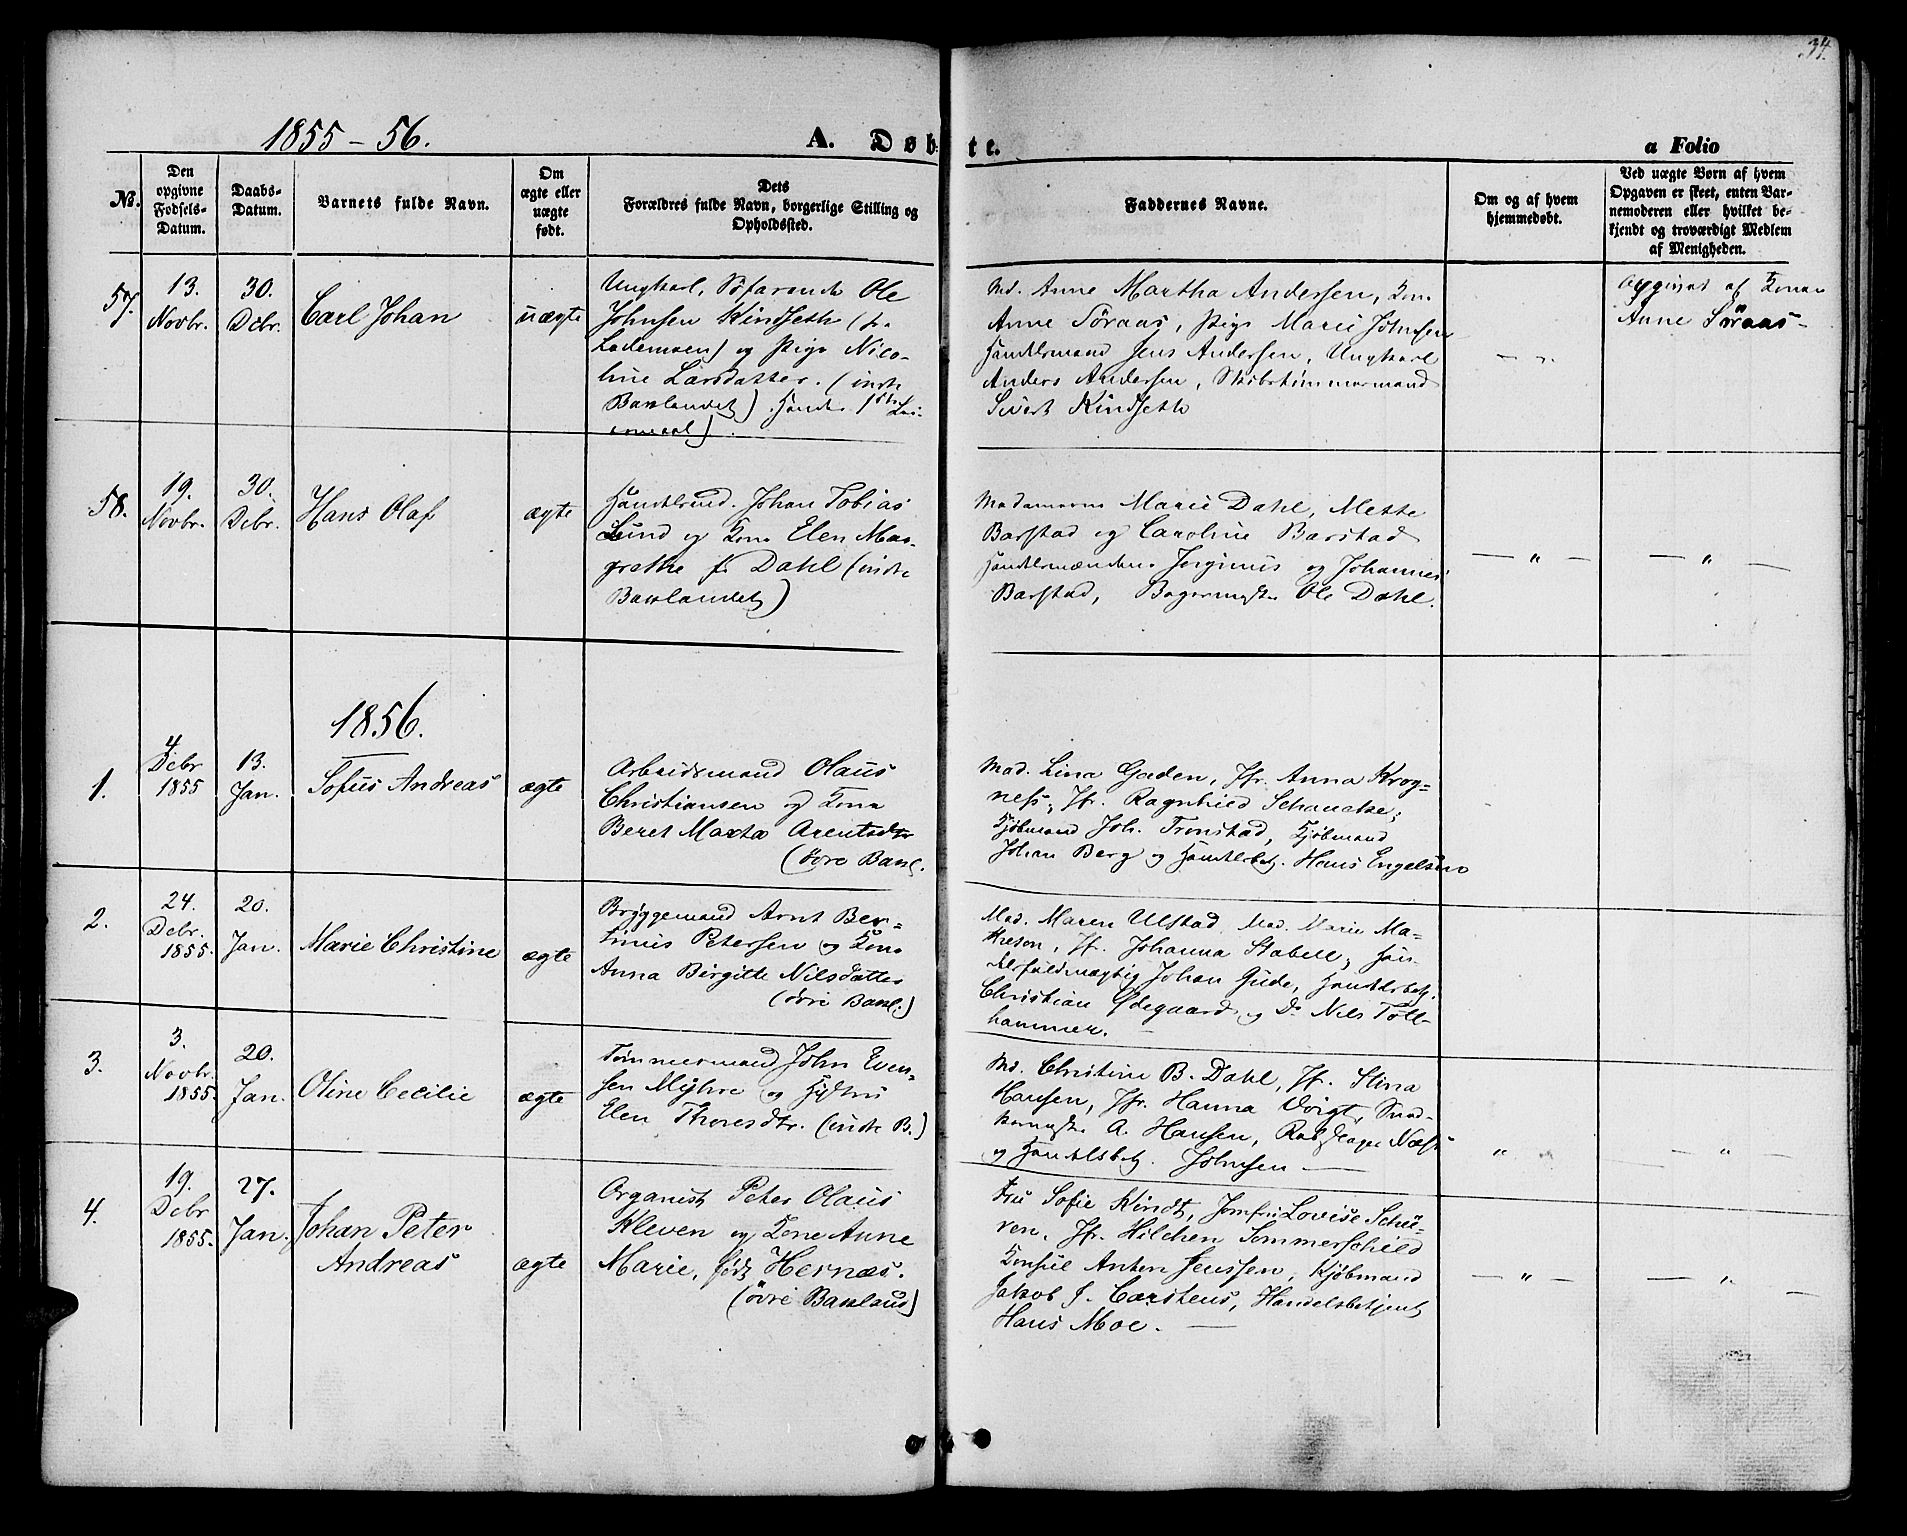 34.
1855-56.
A. Døbte.
a Folio
No.
Den opgivne Fødsels-Datum.
Daabs-Datum.
Barnets fulde Navn.
Om ægte eller uægte født.
Dets Forældres fulde Navn, borgerlige Stilling og Opholdssted.
Faddernes Navne.
Om og af hvem hjemmedøbt.
Ved uægte Børn af hvem Opgaven er skeet, enten Barnemoderen eller hvilket bekjendt og troværdigt Medlem af Menigheden.
57.
13. Novbr.
30. Debr.
Carl Johan
uægte
Ungkarl, Søfarende Ole
Johnsen Kindseth (
Lademoen) og Pige Nico-
line Larsdatter. (indre
Baklandet)
Md. Anne Martha Andersen, Kon.
Anne Søraas, Pige Marie Johnsen
Handelsmand Jens Andersen, Ungkarl
Anders Andersen, Skibstimmermand
Sivert Kindseth
Opgivet af Konen
Anne Søraas-
58.
19. Novbr.
30. Debr.
Hans Olaf
ægte
Handelsmd. Johan Tobias
Lund og Kone Elen Mar-
grethe f. Dahl (indre
Baklandet)
Madamerne Marie Dahl, Mette
Barstad og Caroline Barstad
Handelsmændene Jørginus og Johannes
Barstad, Bagermester Ole Dahl.
— " —
— " —
1856.
1.
4 Debr 1855
13. Jan.
Sofus Andreas
ægte
Arbeidsmand Olaus
Christiansen og Kone
Beret Marta Arentsdtr
(øvre Bakl.
Mad. Lina Gaden, Jfr. Anna Krog-
ness, Jfr. Ragnhild Schancke,
Kjøbmand Joh. Trønstad, Kjøbmand
Johan Berg og Handelsbetj. Hans Engelsen
2.
24. Debr. 1855.
20. Jan.
Marie Christine
ægte
Bryggemand Arnt Ber-
tinus Petersen og Kone
Anna Birgitte Nilsdatter
(øvre Bakl.)
Mad. Maren Ulstad, Mad. Marie Ma-
theson, Jf. Johanna Stabell, Han-
delsfuldmægtig Johan Gude, Handelsbetj.
Christian Ødegaard og Do Nils Toll-
hammer.
3.
3. Novbr. 1855.
20. Jan.
Oline Cecilie
ægte
Tømmermand John Even-
sen Myhre og Hustru
Elen Thoresdtr. (indre B.)
Md. Christine B. Dahl, Jf. Stina
Hansen, Jfr. Hanna Voigt, Sned-
kermester A. Hansen, Næss
og Handelsbetj. Johnsen —
"
— " —
4.
19. Debr 1855.
27. Jan.
Johan Peter
Andreas
ægte
Organist Peter Olaus
Kleven og Kone Anne
Marie, født Hernæs.
(øvre Bakland)
Fru Sofie Kindt, Jomfru Lovise Schü-
ren, Jfr. Hilchen Sommerschield
Konsul Anton Jenssen, Kjøbmand
Jakob J. Carstens, Handelsbetjent
Hans Moe. —
— " —
— " —